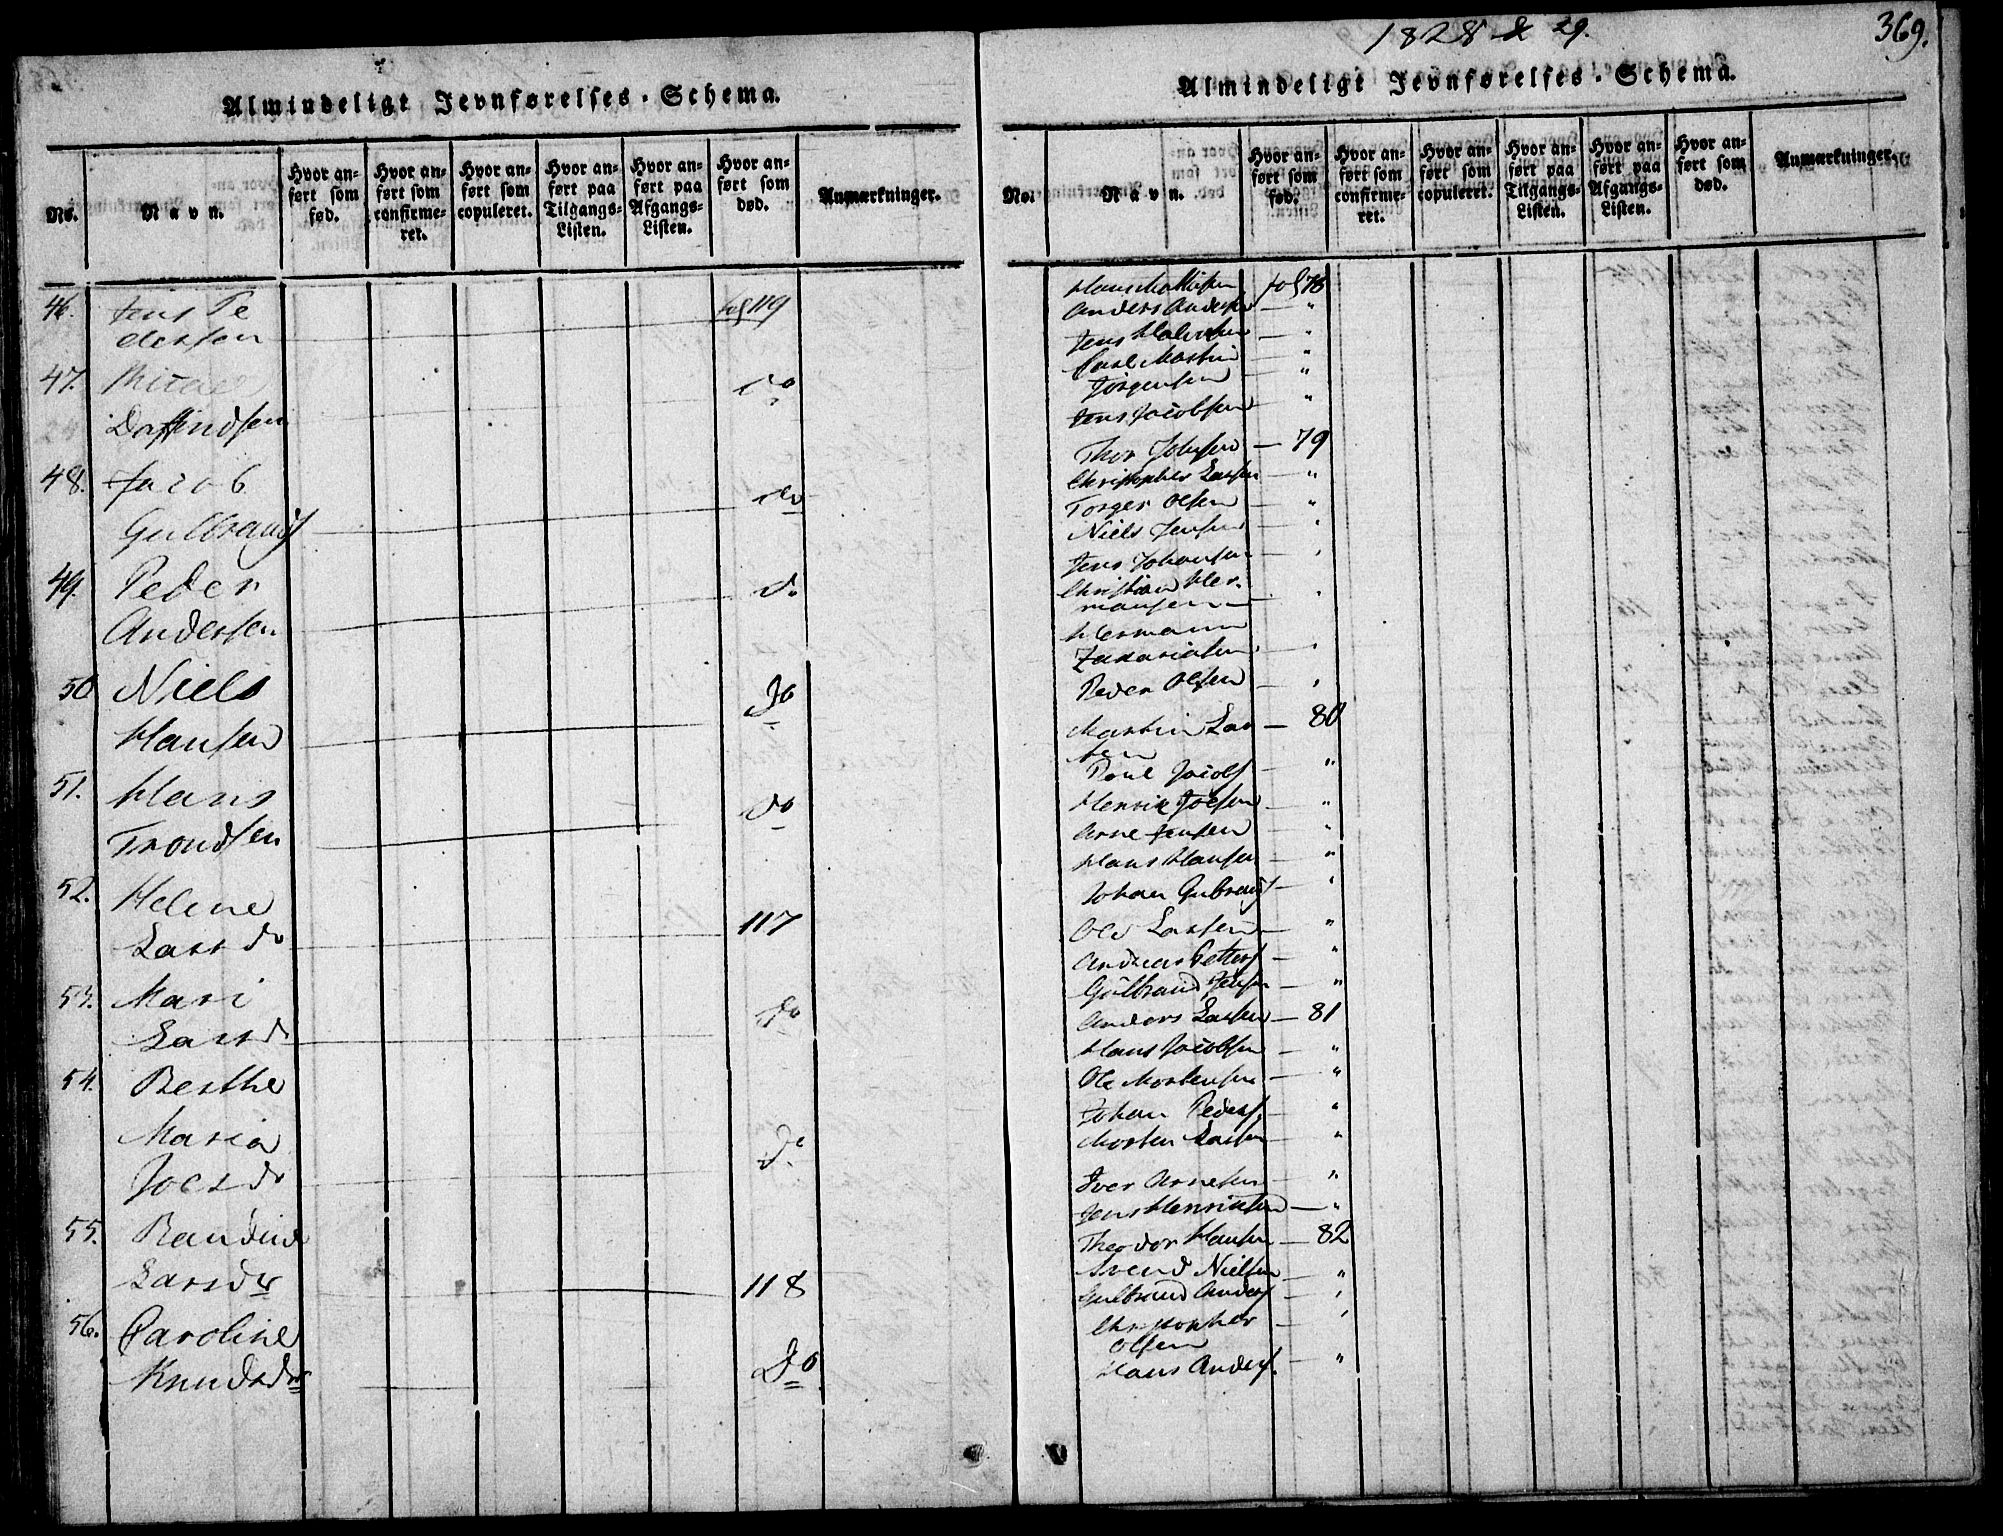 Almindeligt Jevnførelses-Schema.
No.
Navn.
Hvor anført som fød.
Hvor anført som confirmeret.
Hvor anført som copuleret.
Hvor anført paa Tilgangs-Listen.
Hvor anført paa Afgangs-Listen.
Hvor anført som død.
Anmærkninger.
46. Jens Pe fol 119
dersen
47. do
48. Jacob do
Gulbrands
49. Peder do
Andersen
50 Niels do
Hansen
51. Hans do
Trondsen
52. Helene 117
Larsd
53. Mari do
Larsd
54. Berthe
Maria do
Joensdr
55. Randine
Larsdtr 118
56. Caroline
Knudsdtr do
1828 & 29.
369.
Almindeligt Jevnførelses-Schema.
No.
Navn.
Hvor anført som fød.
Hvor anført som confirmeret.
Hvor anført som copuleret.
Hvor anført paa Tilgangs-Listen.
Hvor anført paa Afgangs-Listen.
Hvor anført som død.
Anmærkninger.
Hans Mathisen fol 78
Anders Andersen — "
Jens Halvorsen — "
Carl Martin — "
Jörgensen — "
Jens Jacobsen — "
Thor Johnsen — 79
Christopher Larsen — "
Torger Olsen — "
Niels Jensen — "
Jens Johansen — "
Christian Her-
mansen — "
Hermann
Zakariasen — "
Peder Olsen — "
Martin Lar — 80
sen
Poul Jacobs — "
Henrik Joensen — "
Arne Jensen — "
Hans Hansen — "
Johan Gulbrands — "
Ole Larsen — "
Andreas Petters — "
Gulbrand Jensen — "
Anders Larsen — 81
Hans Jacobsen — "
Ole Mortensen — "
Johan Peders — "
Morten Larsen — "
Iver Arnesen — "
Jens Henriksen — "
Theodor Hansen — 82
Svend Nielsen — "
Gulbrand Anders — "
Christopher — "
Olsen
Hans Anders. — "